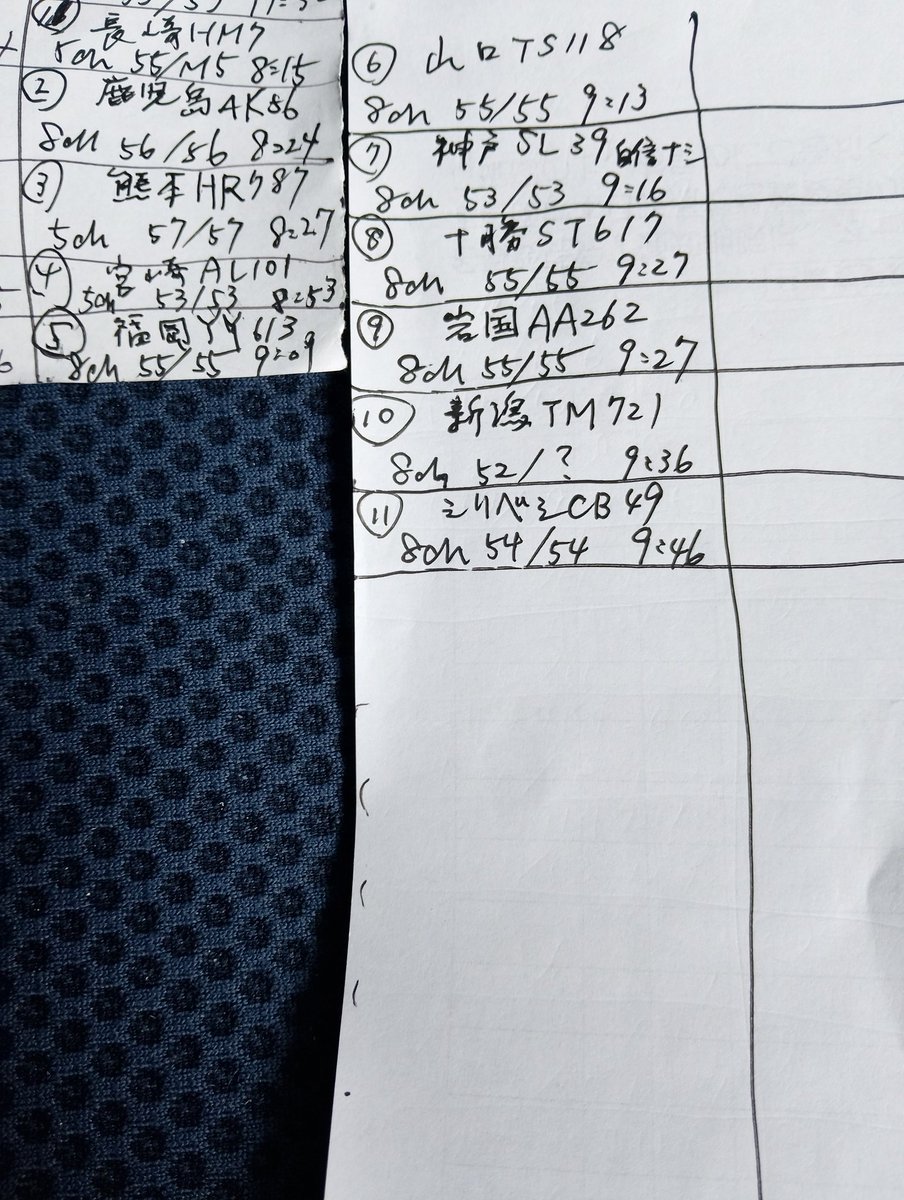 ① 長崎HM7
5ch 55/M5 8:15
② 鹿児島AK86
8ch 56/56 8:24
③ 熊本HR787
5ch 57/57 8:27
④ 宮崎AL101
5ch 53/53 8:53
⑤ 福岡YY613
8ch 55/55 9:09
⑥ 山口TS118
8ch 55/55 9:13
⑦ 神戸SL39 自信ナシ
8ch 53/53 9:16
⑧ 十勝ST617
8ch 55/55 9:27
⑨ 岩国AA262
8ch 55/55 9:27
⑩ 新潟TM721
8ch 52/? 9:36
⑪ シリベシCB49
8ch 54/54 9:46